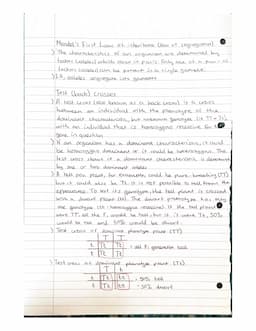 Mendel's First Law of Inheritance (Law of segregation)
> The characteristics of an organism are determined by
factors (alleles) which occur in pairs. Only one of a pair of
factors (alleles) can be present in a single gamete.
> I.e., alleles segregate into gametes
Test (back) crosses
> A test cross (also known as a back cross) is a cross
between an individual with the phenotype of the
dominant characteristic, but unknown genotype (ie TT or Tt),
with an individual that is homozygous recessive for the
gene in question
> If an organism has a dominant characteristic, it could
be homozygous dominant or it could be heterozygous. The
test cross shows if a dominant characteristic is determined
by one or two dominant alleles
> A tall pea plant, for example, could be pure breeding (TT)
but it could also be Tt. It is not possible to tell from the
appearance. To test its genotype, the tall plant is crossed
with a dwarf plant (tt). The dwarf phenotype has only
one genotype (tt - homozygous recessive). If the tall plant
were TT, all the F₁ would be tall, but if it were Tt, 50%
would be tall and 50% would be dwarf.
> Test cross of dominant phenotype plant (TT)
T T
t Tt Tt
t Tt Tt
- all F₁ generation tall
> Test cross of dominant phenotype plant (Tt)
T t
t Tt tt
t Tt tt
- 50% tall
- 50% dwarf